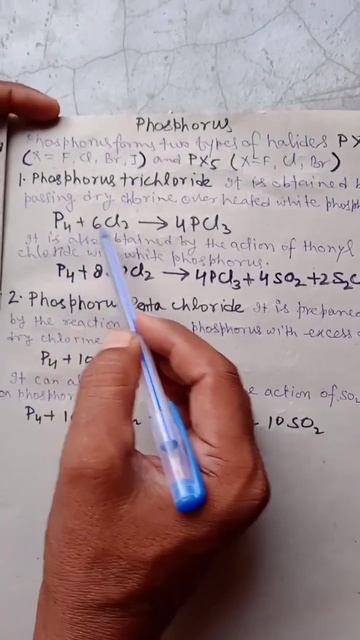 Phosphorus
Phosphorus forms two types of halides PX
(X = F, Cl, Br, I) and PX5 (X=F, Cl, Br)
1. Phosphorus trichloride It is obtained b
passing dry chlorine over heated white phosph
P4 + 6Cl2 → 4PCl3
It is also obtained by the action of thonyl
chloride with white phosphorus.
P4 + 8 Cl2 → 4PCl3 + 4SO2 + 2S2C
2. Phosphoru enta chloride It is prepare
by the reaction phosphorus with excess
dry chlorine
P4 + 10
It can al e action of SO2
on phosphor
P4 + 1 10SO2